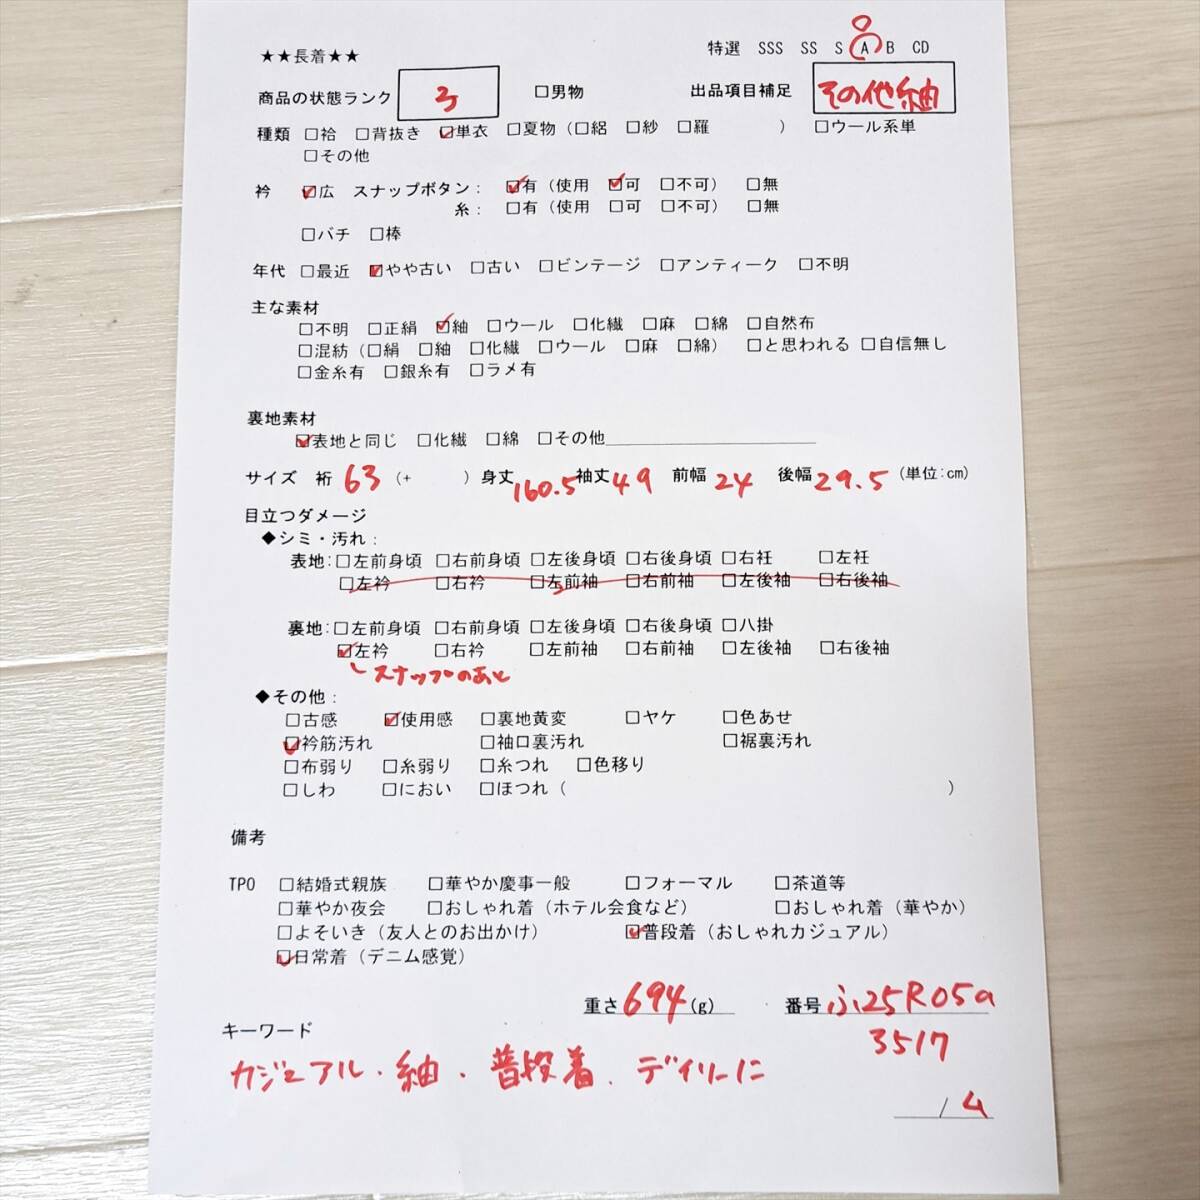 ★★長着★★
特選 SSS SS S A B CD
商品の状態ランク 3 □男物 出品項目補足 その他紬
種類 □袷 □背抜き ☑単衣 □夏物(□絽 □紗 □羅 ) □ウール系単
□その他
衿 ☑広 スナップボタン: ☑有(使用 ☑可 □不可) □無
糸: □有(使用 □可 □不可) □無
□バチ □棒
年代 □最近 ☑やや古い □古い □ビンテージ □アンティーク □不明
主な素材
□不明 □正絹 ☑紬 □ウール □化繊 □麻 □綿 □自然布
□混紡(□絹 □紬 □化繊 □ウール □麻 □綿) □と思われる □自信無し
□金糸有 □銀糸有 □ラメ有
裏地素材
☑表地と同じ □化繊 □綿 □その他
サイズ 裄 63 (+ ) 身丈 160.5 袖丈 49 前幅 24 後幅 29.5 (単位:cm)
目立つダメージ
◆シミ・汚れ:
表地:□左前身頃 □右前身頃 □左後身頃 □右後身頃 □右衽 □左衽
□左衿 □右衿 □左前袖 □右前袖 □左後袖 □右後袖
裏地:□左前身頃 □右前身頃 □左後身頃 □右後身頃 □八掛
☑左衿 □右衿 □左前袖 □右前袖 □左後袖 □右後袖
スナップのあと
◆その他:
□古感 ☑使用感 □裏地黄変 □ヤケ □色あせ
☑衿筋汚れ □袖口裏汚れ □裾裏汚れ
□布弱り □糸弱り □糸つれ □色移り
□しわ □におい □ほつれ( )
備考
TPO □結婚式親族 □華やか慶事一般 □フォーマル □茶道等
□華やか夜会 □おしゃれ着(ホテル会食など) □おしゃれ着(華やか)
□よそいき(友人とのお出かけ) ☑普段着(おしゃれカジュアル)
☑日常着(デニム感覚)
重さ 694 (g) 番号 ふ25R05a
3517
キーワード
カジュアル・紬・普段着・デイリーに
/ 4